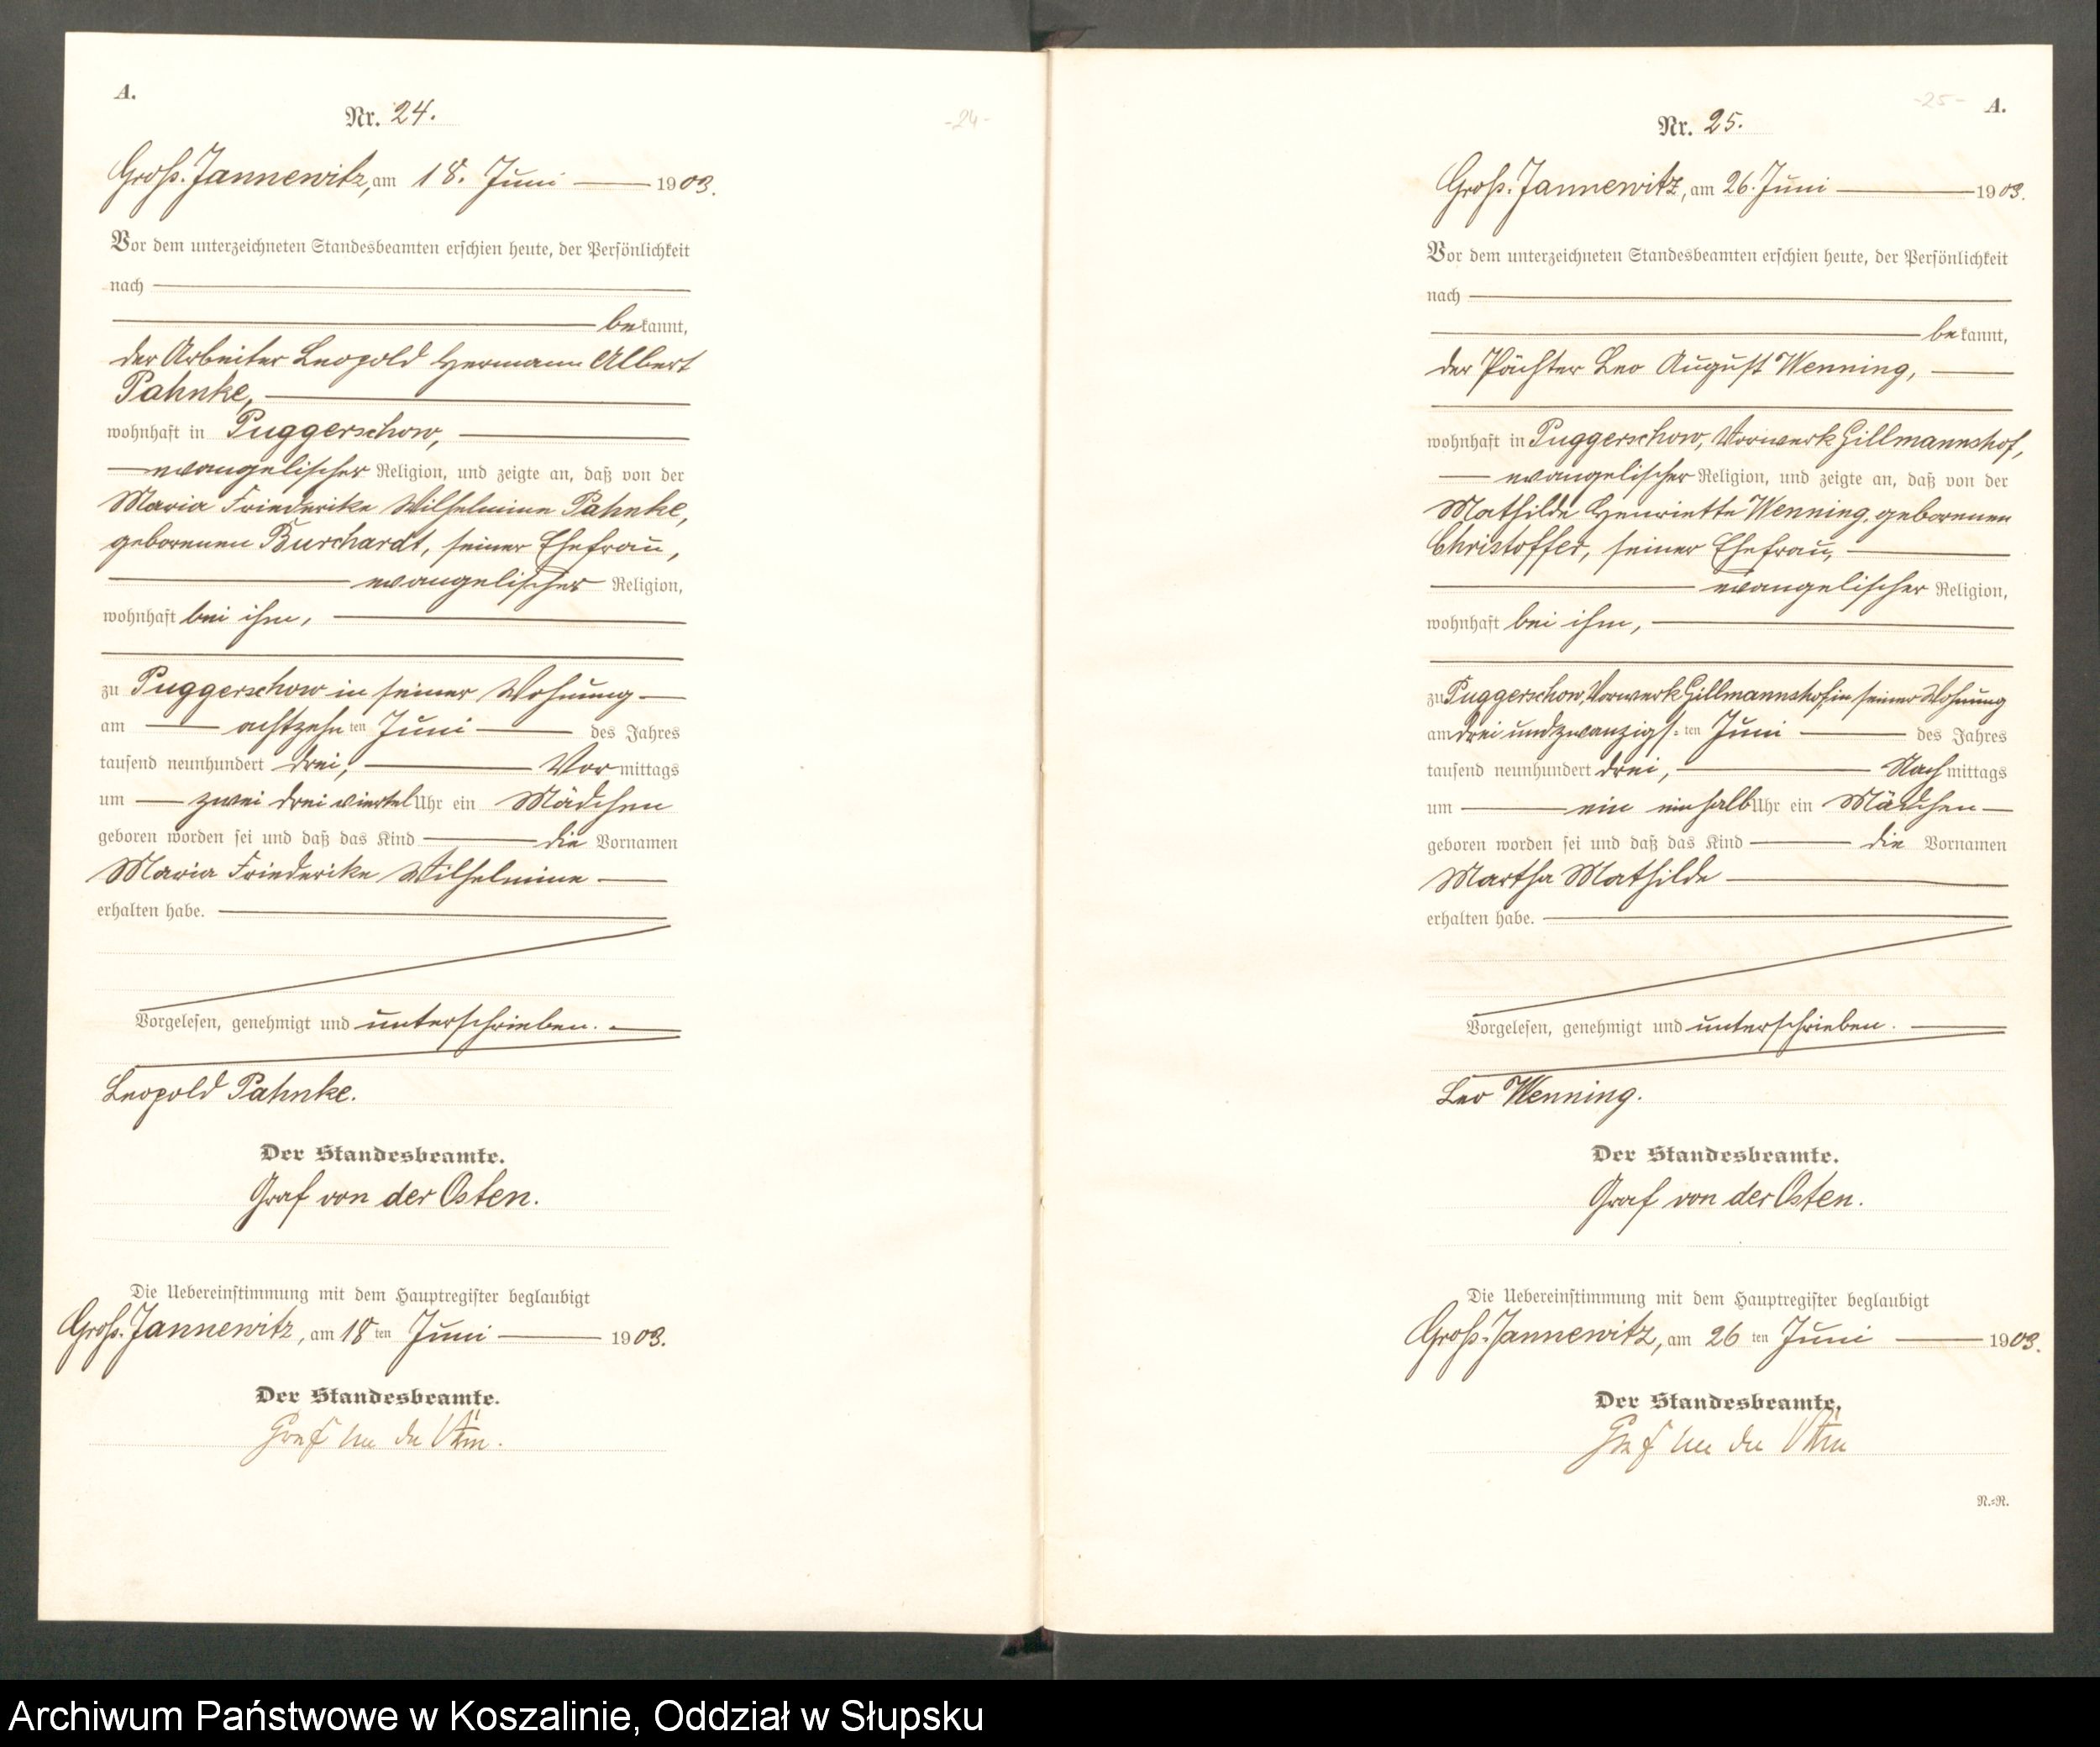 A.
Nr. 24.
-24-
Groß-Jannewitz, am 18. Juni 1903.
Vor dem unterzeichneten Standesbeamten erschien heute, der Persönlichkeit
nach
bekannt,
der Arbeiter Leopold Hermann Albert
Pahnke,
wohnhaft in Puggerschow,
evangelischer Religion, und zeigte an, daß von der
Maria Friederike Wilhelmine Pahnke,
geborenen Burchardt, seiner Ehefrau,
evangelischer Religion,
wohnhaft bei ihm,
zu Puggerschow in seiner Wohnung
am achtzehnten Juni des Jahres
tausend neunhundert drei, Vormittags
um zwei drei viertel Uhr ein Mädchen
geboren worden sei und daß das Kind die Vornamen
Maria Friederike Wilhelmine
erhalten habe.
Vorgelesen, genehmigt und unterschrieben.
Leopold Pahnke.
Der Standesbeamte.
Graf von der Osten.
Die Uebereinstimmung mit dem Hauptregister beglaubigt
Groß-Jannewitz, am 18ten Juni 1903.
Der Standesbeamte.
Graf von der Osten.
-25-
A.
Nr. 25.
Groß-Jannewitz, am 26. Juni 1903.
Vor dem unterzeichneten Standesbeamten erschien heute, der Persönlichkeit
nach
bekannt,
der Pächter Leo August Wenning,
wohnhaft in Puggerschow, Vorwerk Gillmannshof,
evangelischer Religion, und zeigte an, daß von der
Mathilde Henriette Wenning, geborenen
Christoffer, seiner Ehefrau,
evangelischer Religion,
wohnhaft bei ihm,
zu Puggerschow, Vorwerk Gillmannshof in seiner Wohnung
am drei und zwanzigsten Juni des Jahres
tausend neunhundert drei, Nachmittags
um ein einhalb Uhr ein Mädchen
geboren worden sei und daß das Kind die Vornamen
Martha Mathilde
erhalten habe.
Vorgelesen, genehmigt und unterschrieben.
Leo Wenning.
Der Standesbeamte.
Graf von der Osten.
Die Uebereinstimmung mit dem Hauptregister beglaubigt
Groß-Jannewitz, am 26ten Juni 1903.
Der Standesbeamte.
Graf von der Osten
N.=R.
Archiwum Państwowe w Koszalinie, Oddział w Słupsku